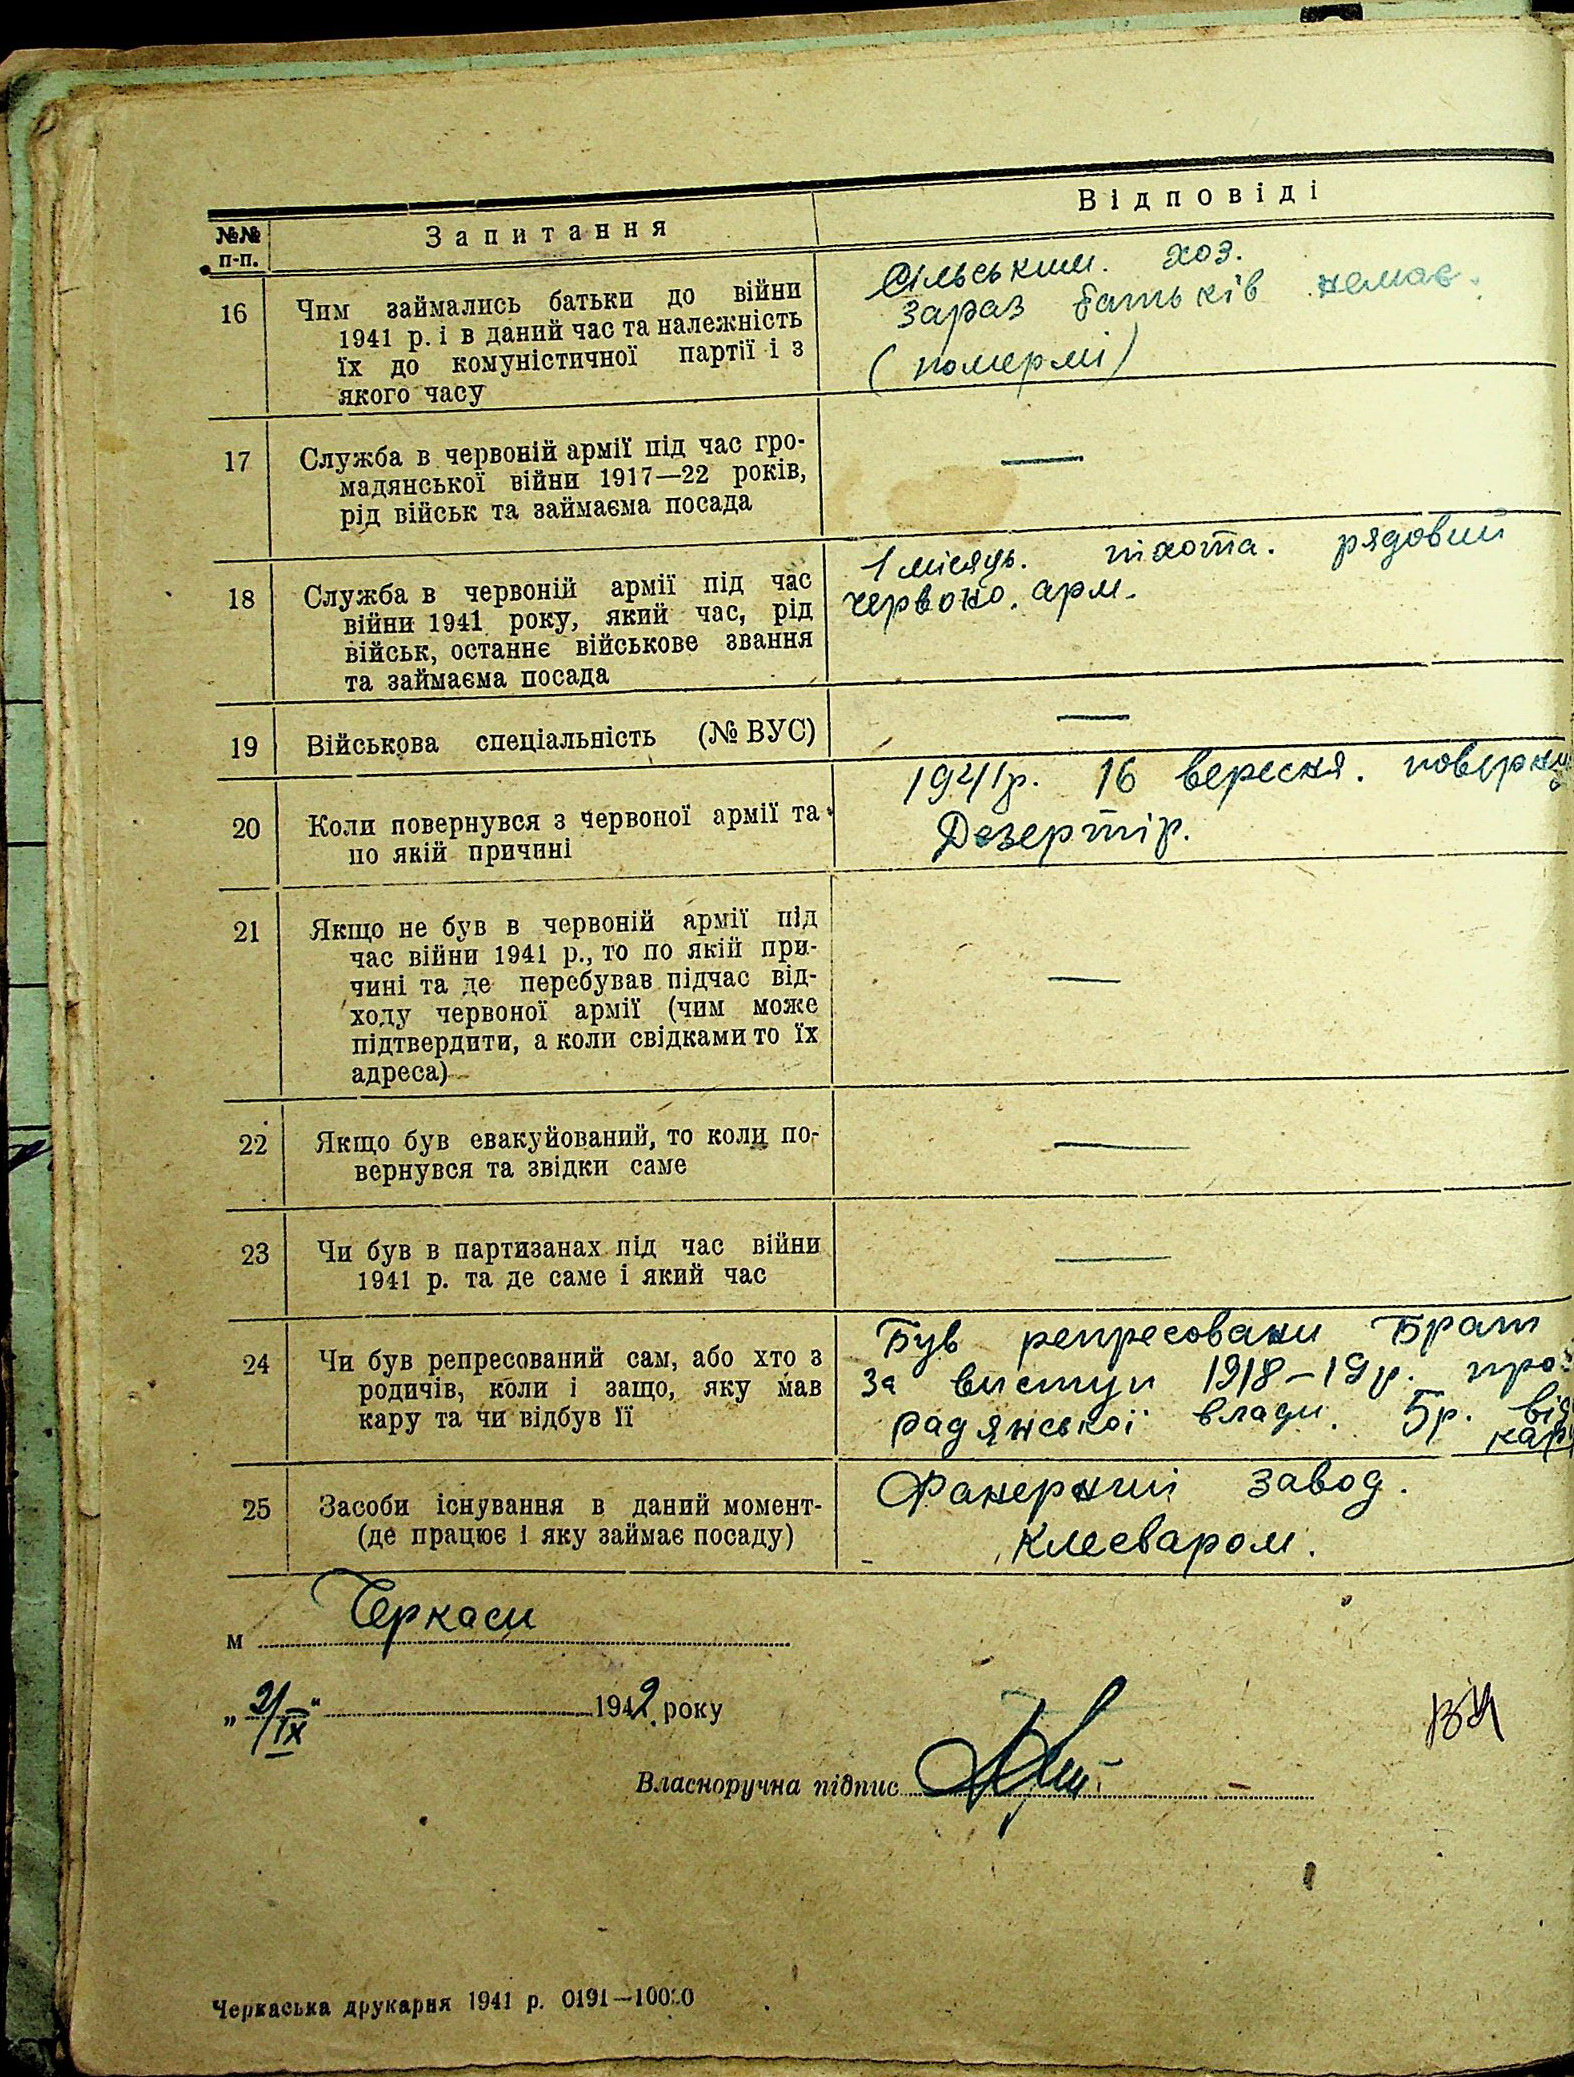 №№ п-п.
Запитання
Відповіді
16
Чим займались батьки до війни
1941 р. і в даний час та належність
їх до комуністичної партії і з
якого часу
Сільським. хоз.
Зараз батьків немає.
(померлі)
17
Служба в червоній армії під час гро-
мадянської війни 1917—22 років,
рід військ та займаєма посада
—
18
Служба в червоній армії під час
війни 1941 року, який час, рід
військ, останнє військове звання
та займаєма посада
1 місяць. піхота. рядовий
червоно. арм.
19
Військова спеціальність (№ ВУС)
—
20
Коли повернувся з червоної армії та
по якій причині
1941р. 16 вересня.
Дезертір.
21
Якщо не був в червоній армії під
час війни 1941 р., то по якій при-
чині та де перебував підчас від-
ходу червоної армії (чим може
підтвердити, а коли свідками то їх
адреса)
—
22
Якщо був евакуйований, то коли по-
вернувся та звідки саме
—
23
Чи був в партизанах під час війни
1941 р. та де саме і який час
—
24
Чи був репресований сам, або хто з
родичів, коли і защо, яку мав
кару та чи відбув її
Був репресовани Брат
за виступи 1918–19р.
радянської влади. 5р.
25
Засоби існування в даний момент-
(де працює і яку займає посаду)
Фанерний завод.
Клееваром.
м Черкаси
1942 року
Власноручна підпис
Черкаська друкарня 1941 р. 0191—10000